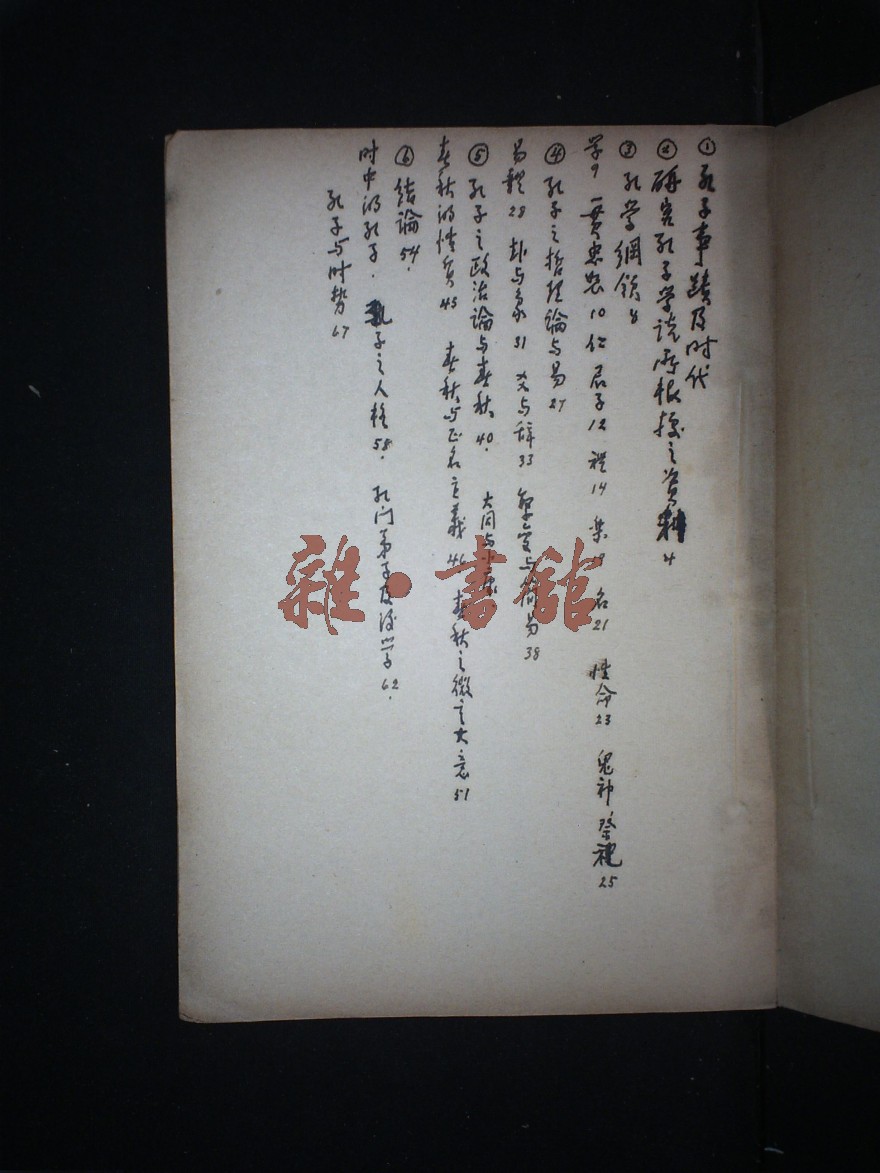 ① 孔子事蹟及时代
② 研究孔子学说所根據之资料 4
③ 孔学綱领 8
学9 一贯忠恕 10 仁 君子 12 礼 14 樂 名 21 性命 23 鬼神,祭祀 25
④ 孔子之哲理論与易 27
易体 28 卦与象 31 爻与辞 33 繫辞与 易 38
⑤ 孔子之政治論与春秋 40. 大同与小康
春秋的性质 45 春秋与正名主義 46 春秋之微言大义 51
⑥ 结論 54.
时中的孔子. 孔子之人格 58. 孔门弟子及後学 62.
孔子与时势 67
雜·書館